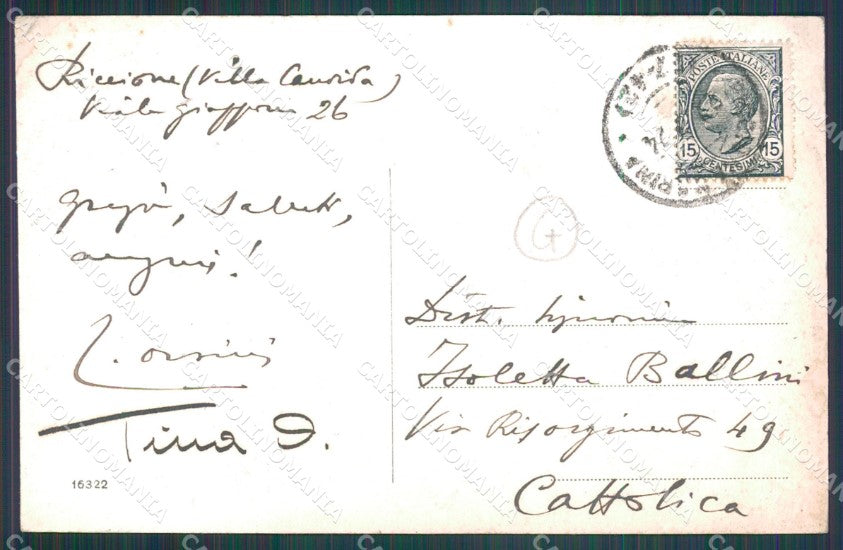 Riccione (Villa Candida)
Viale Giapponi 26
saluti,
auguri!
L. Orsini
Tina O.
16322
POSTE ITALIANE
15 15
CENTESIMI
MARINA
24
G
Dist. Signorina
Isoletta Ballini
Via Risorgimento 49
Cattolica
CARTOLINOMANIA